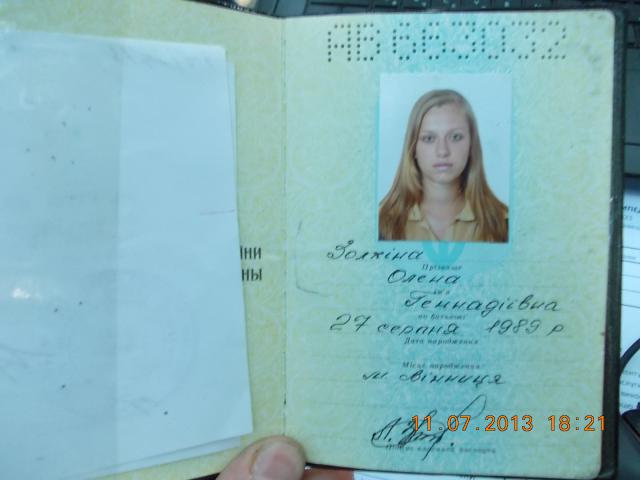 АВ663032
їни
ны
Золкіна
Прізвище
Олена
Ім'я
Геннадіївна
по батькові
27 серпня 1989 р
Дата народження
Місце народження
м. Вінниця
11.07.2013 18:21
Підпис власника паспорта